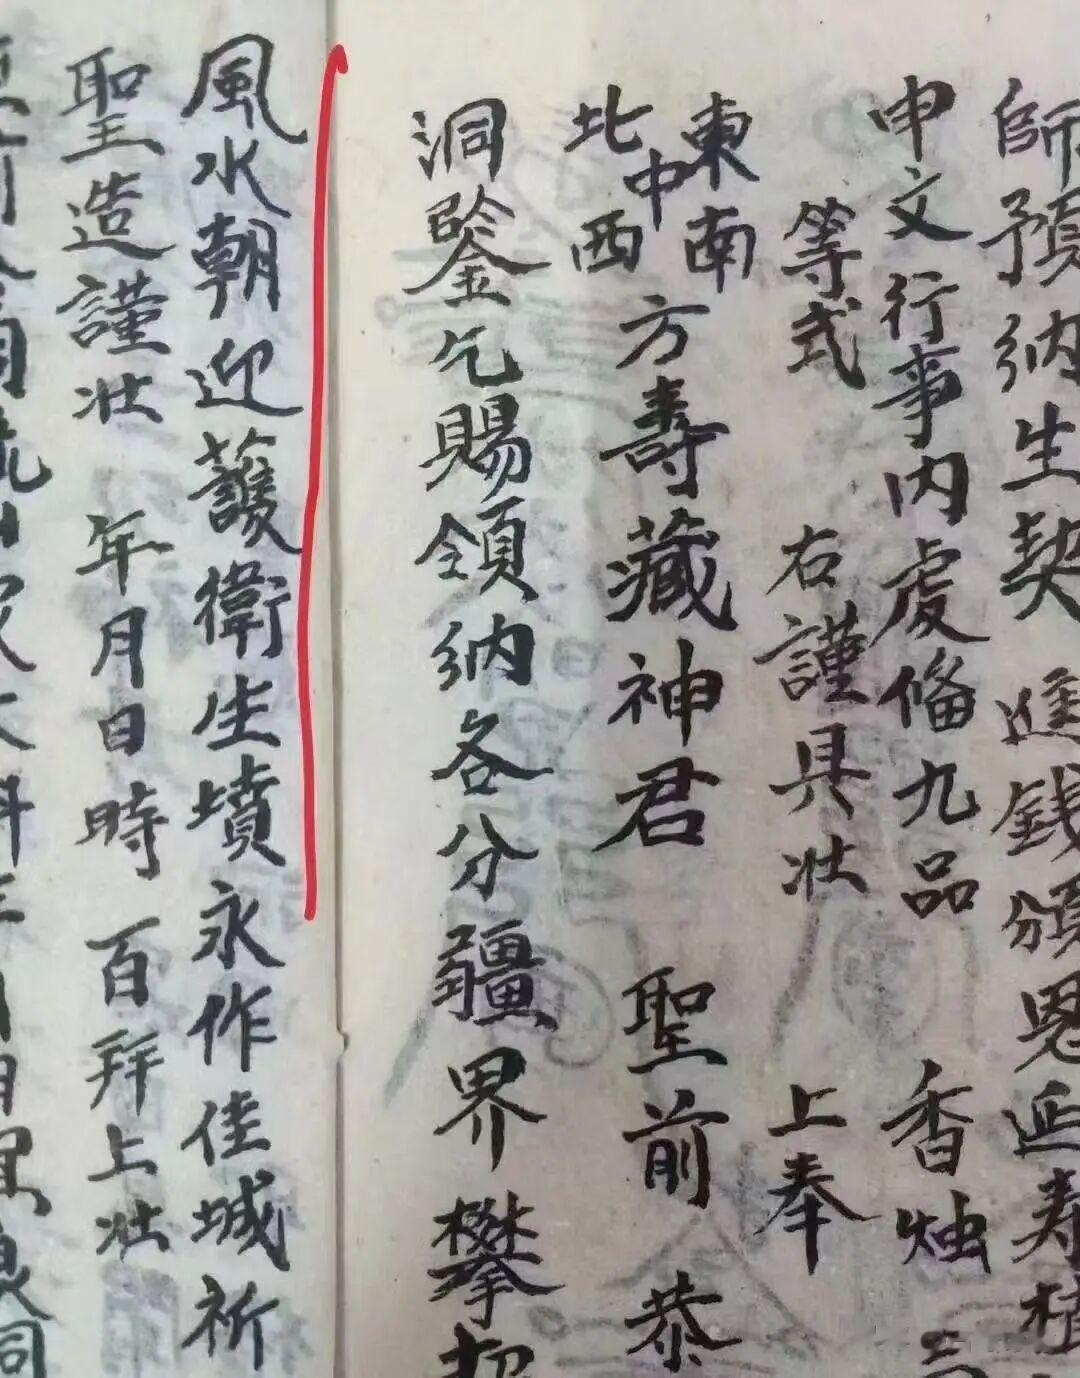 師預納生契 進錢頒恩延寿植
申文行事内虔俻九品 香烛三
等式 右謹具壮 上奉
東南中北西方壽藏神君 聖前 恭
洞鑒乞賜領納各分疆界攀
風水朝迎護衛生墳永作佳城祈
聖造謹壮 年月日時 百拜上壮